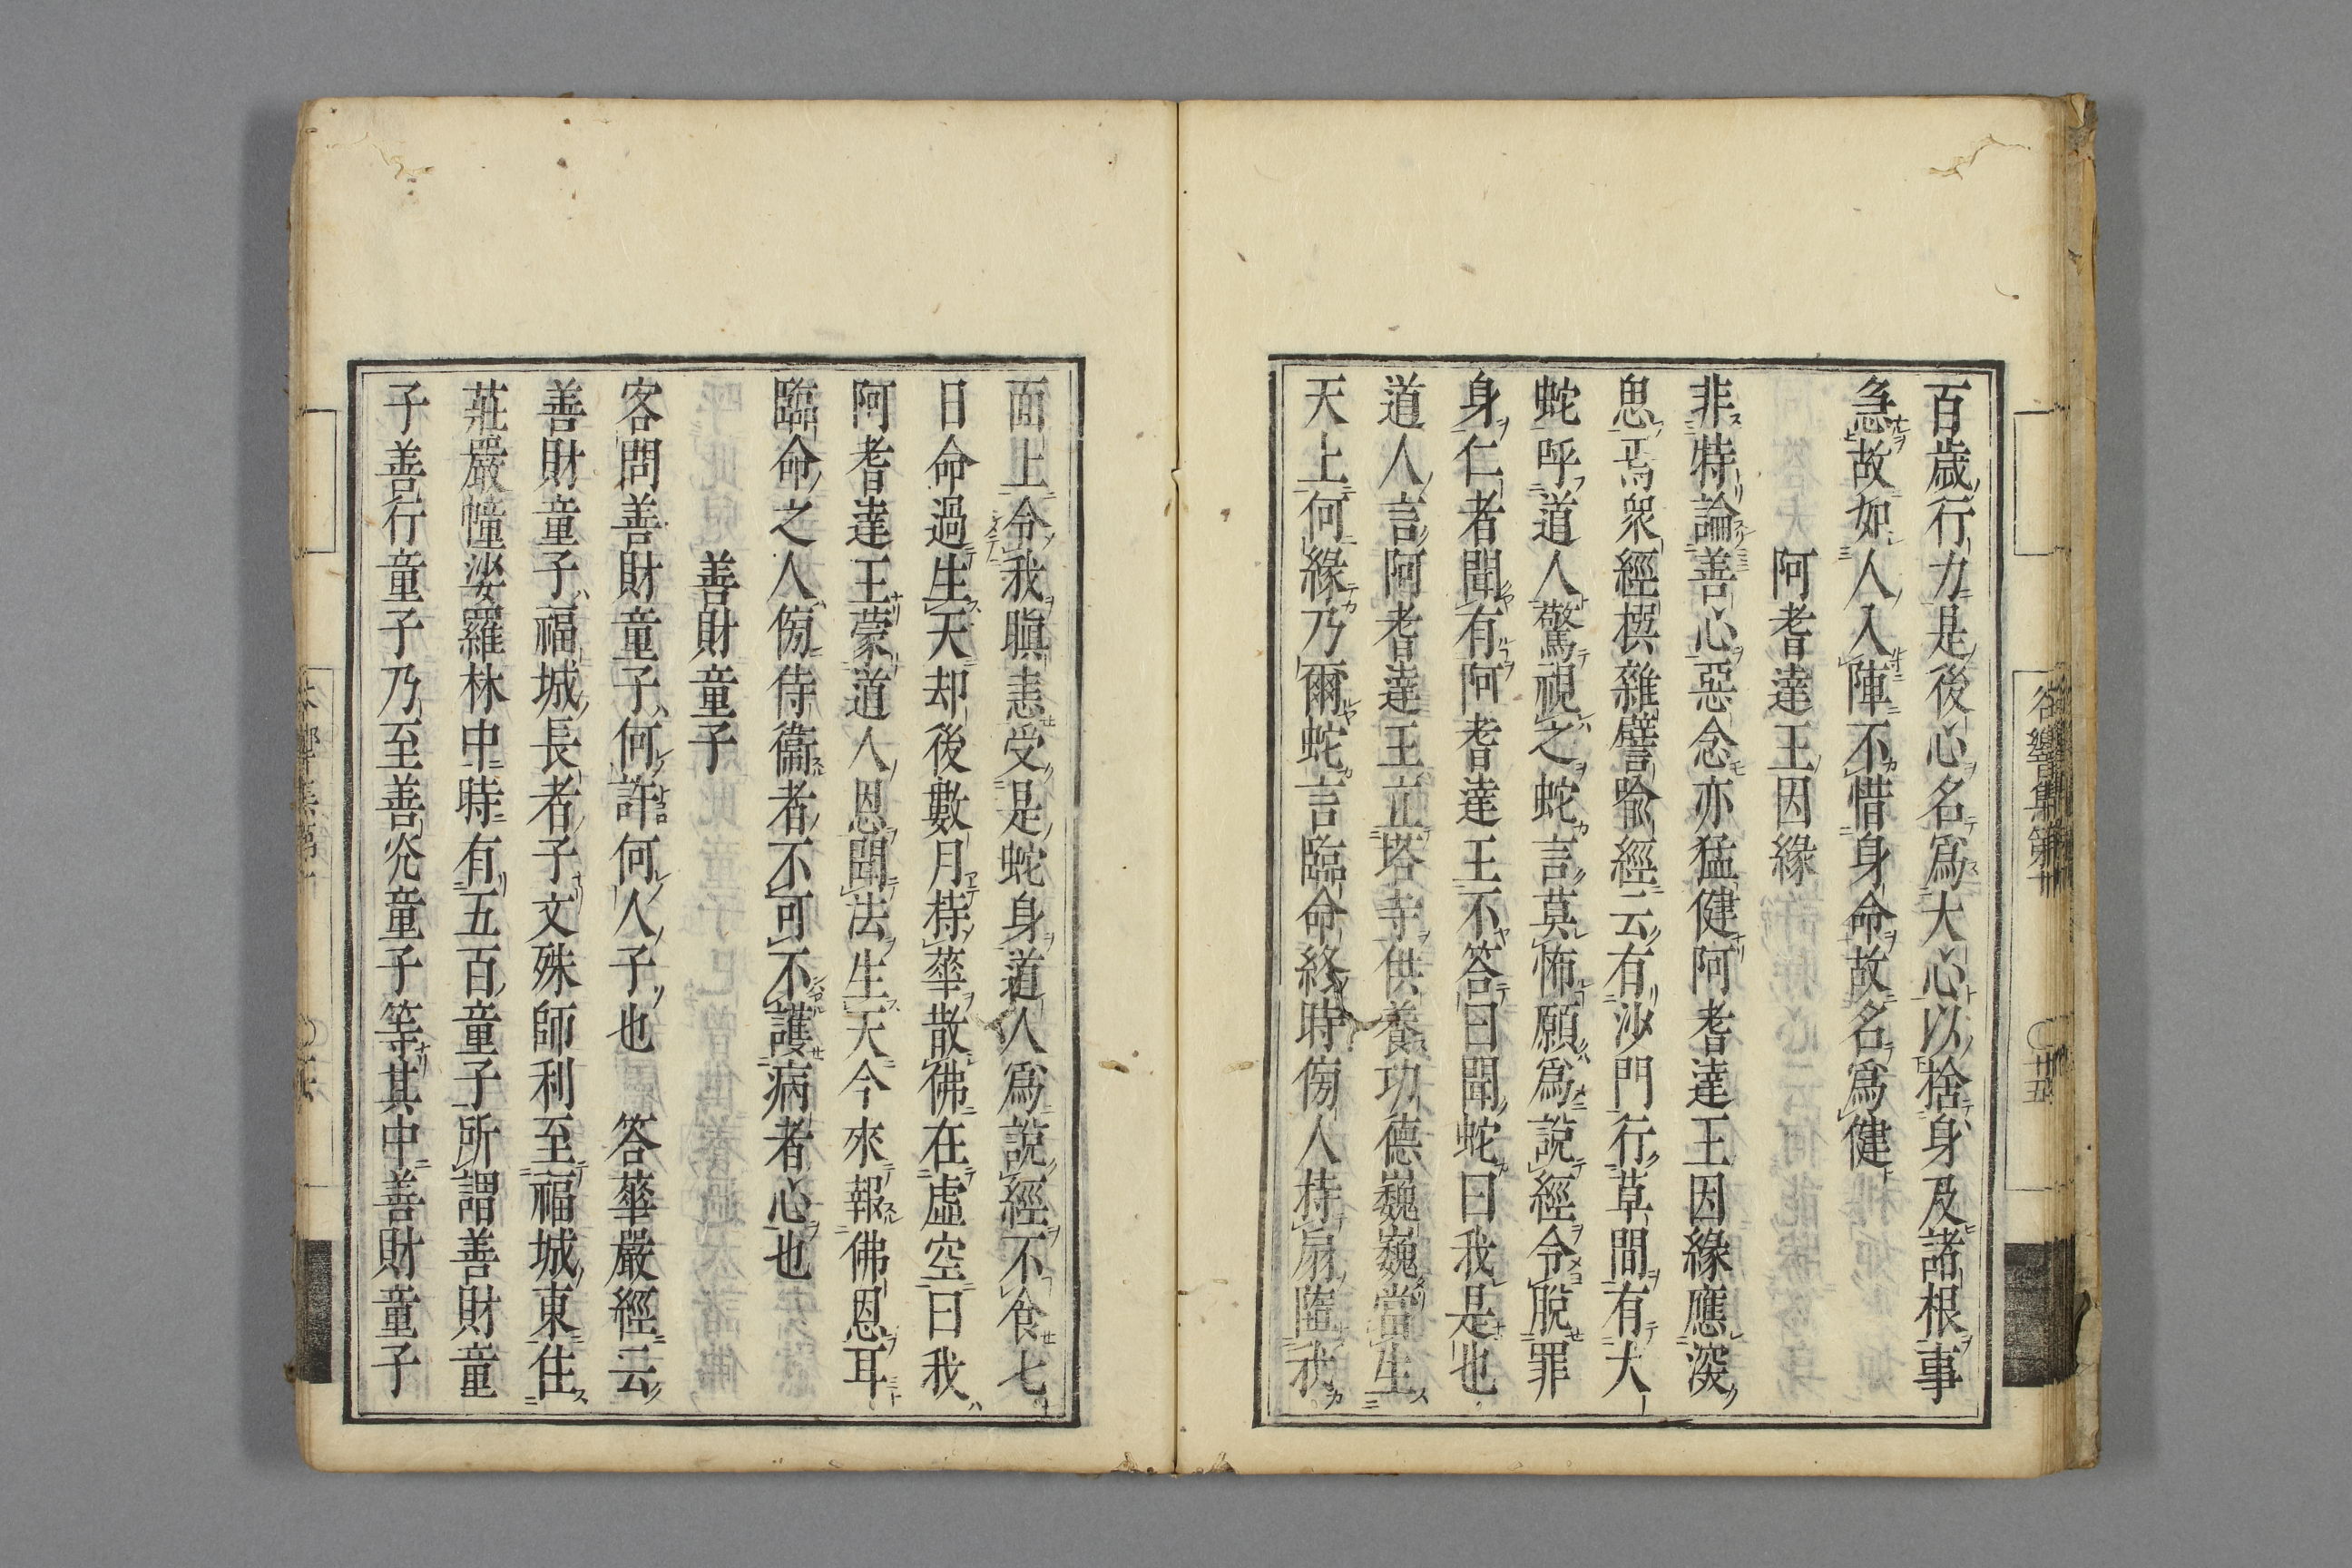 百歲行力是後心名爲大心以捨身及諸根事
急故如人入陣不惜身命故名爲健
阿耆達王因緣
非特論善心惡念亦猛健阿耆達王因緣應深
思焉衆經撰雜譬喩經云有沙門行草間有大
蛇呼道人驚視之蛇言莫怖願爲說經令脫罪
身仁者聞有阿耆達王不答曰聞蛇曰我是也
道人言阿耆達王立塔寺供養功德巍巍當生
天上何緣乃爾蛇言臨命終時傍人持扇墮我
面上令我瞋恚受是蛇身道人爲說經不食七
日命過生天却後數月持華散佛在虛空曰我
阿耆達王蒙道人恩聞法生天今來報佛恩耳
臨命之人傍侍衞者不可不護病者心也
善財童子
客問善財童子何許何人子也 答華嚴經云
善財童子福城長者子文殊師利至福城東住
莊嚴幢娑羅林中時有五百童子所謂善財童
子善行童子乃至善光童子等其中善財童子
谷響集第十
廿五